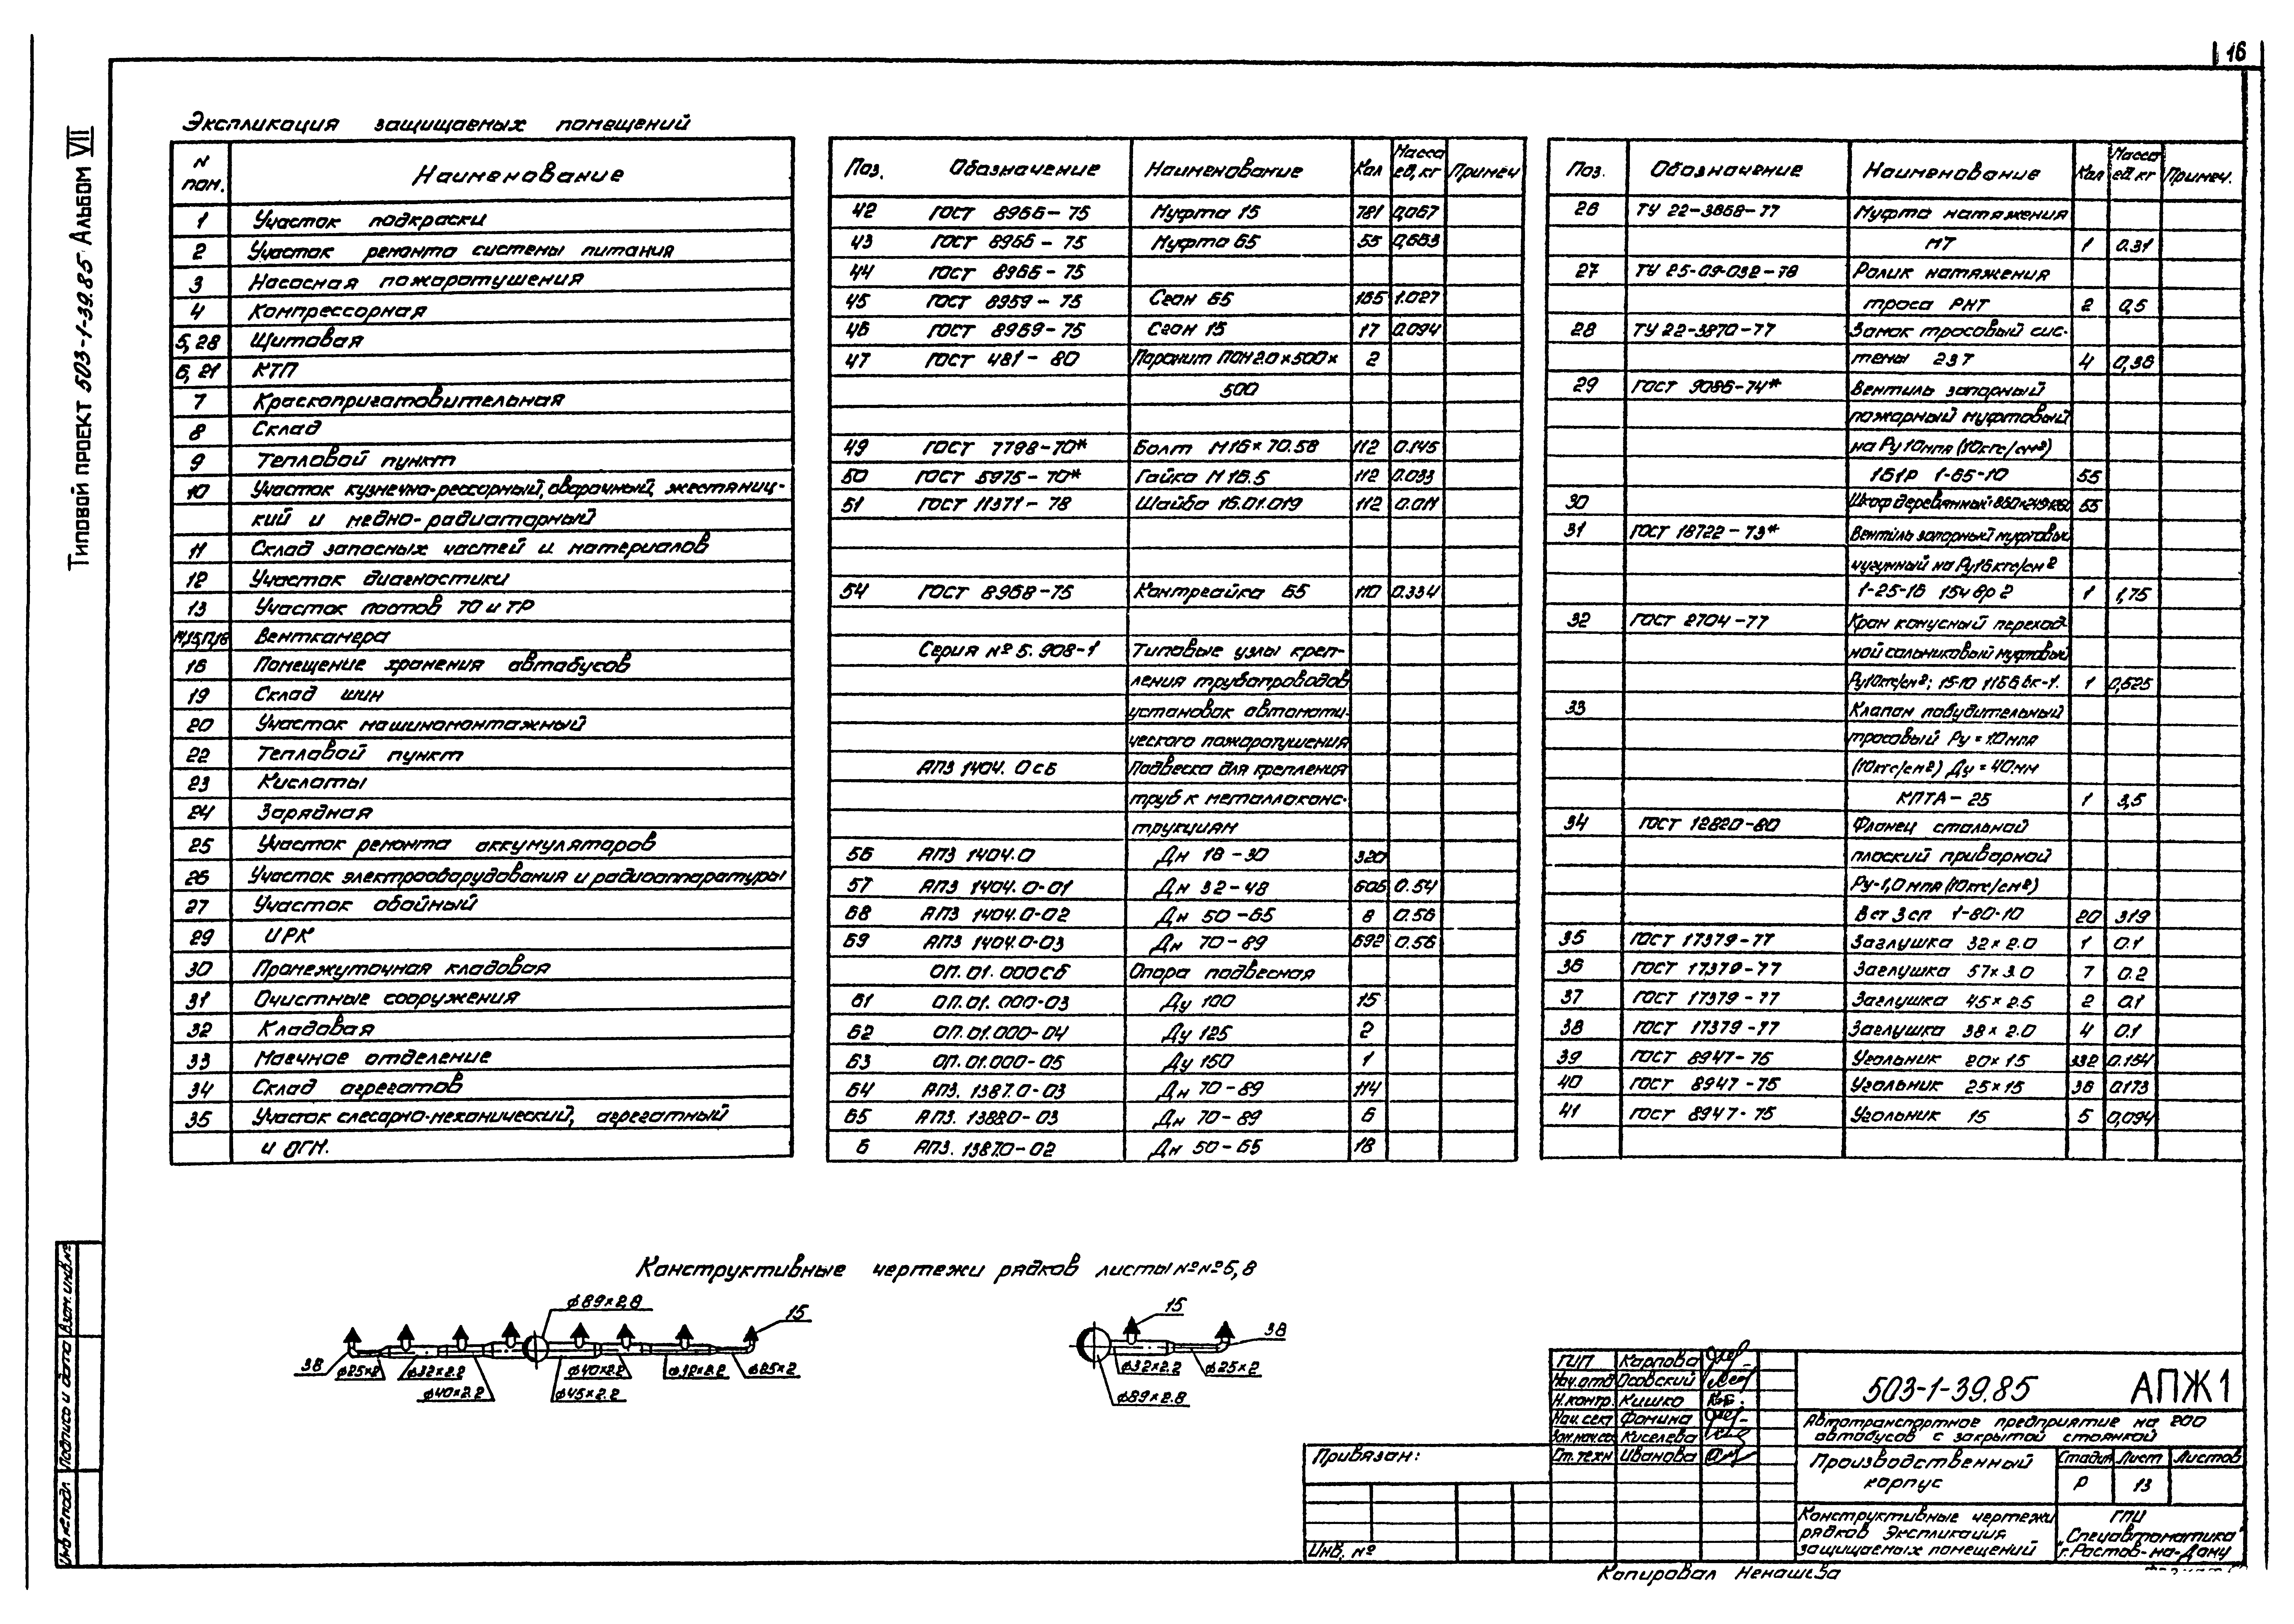 16
Типовой проект 503-1-39.85 Альбом VII
Экспликация защищаемых помещений
N пом. Наименование
1 Участок подкраски
2 Участок ремонта системы питания
3 Насосная пожаротушения
4 Компрессорная
5,28 Щитовая
6,21 КТП
7 Краскоприготовительная
8 Склад
9 Тепловой пункт
10 Участок кузнечно-рессорный, сварочный, жестяниц-
кий и медно-радиаторный
11 Склад запасных частей и материалов
12 Участок диагностики
13 Участок постов ТО и ТР
Венткамера
16 Помещение хранения автобусов
19 Склад шин
20 Участок машиномонтажный
22 Тепловой пункт
23 Кислоты
24 Зарядная
25 Участок ремонта аккумуляторов
26 Участок электрооборудования и радиоаппаратуры
27 Участок обойный
29 ЦРК
30 Промежуточная кладовая
31 Очистные сооружения
32 Кладовая
33 Моечное отделение
34 Склад агрегатов
35 Участок слесарно-механический, агрегатный
и ОГМ.
Поз. Обозначение Наименование Кол Масса ед, кг Примеч
42 ГОСТ 8966-75 Муфта 15 781 0,067
43 ГОСТ 8966-75 Муфта 65 55
44 ГОСТ 8966-75
45 ГОСТ 8969-75 Сгон 65 165 1.027
46 ГОСТ 8969-75 Сгон 15 17 0.094
47 ГОСТ 481-80 Паронит ПОН 2.0×500× 2
500
49 ГОСТ 7798-70* Болт М16×70.58 112 0.145
50 ГОСТ 5975-70* Гайка М16.5 112 0.033
51 ГОСТ 11371-78 Шайба 16.01.019 112 0.011
54 ГОСТ 8968-75 Контргайка 65 110 0.334
Серия №5.908-1 Типовые узлы креп-
ления трубопроводов
установок автомати-
ческого пожаротушения
АПЗ 1404.0сб Подвеска для крепления
труб к металлоконс-
трукциям
56 АПЗ 1404.0 Дн 18-30 320
57 АПЗ 1404.0-01 Дн 32-48 606 0.54
68 АПЗ 1404.0-02 Дн 50-65 8 0.56
69 АПЗ 1404.0-03 Дн 70-89 692 0.56
ОП.01.000сб Опора подвесная
61 ОП.01.000-03 Ду 100 15
62 ОП.01.000-04 Ду 125 2
63 ОП.01.000-05 Ду 150 1
64 АПЗ.1387.0-03 Дн 70-89 114
65 АПЗ.1388.0-03 Дн 70-89 6
6 АПЗ.1387.0-02 Дн 50-65 18
Поз. Обозначение Наименование Кол Масса ед кг Примеч.
26 ТУ 22-3868-77 Муфта натяжения
МТ 1 0.31
27 ТУ 25-09-032-78 Ролик натяжения
троса РНТ 2 0,5
28 ТУ 22-3870-77 Замок тросовый сис-
темы 23Т 4 0,36
29 ГОСТ 9086-74* Вентиль запорный
пожарный муфтовый
на Ру 10мпа (10кгс/см²)
1Б1Р 1-65-10 55
30 Шкаф деревянный 55
31 ГОСТ 18722-73* Вентиль запорный муфтовый
чугунный на Ру16кгс/см²
1-25-16 15ч 8р2 1 1,75
32 ГОСТ 2704-77 Кран конусный переход-
ной сальниковый муфтовый
Ру10кгс/см²; 15-10 11Б6бк-1. 1 0,525
33 Клапан побудительный
тросовый Ру = 1.0мпа
(10кгс/см²) Ду = 40мм
КПТА-25 1 3,5
34 ГОСТ 12820-80 Фланец стальной
плоский приварной
Ру-1,0 мпа (10кгс/см²)
Вст 3сп 1-80-10 20 3.19
35 ГОСТ 17379-77 Заглушка 32×2.0 1 0.1
36 ГОСТ 17379-77 Заглушка 57×3.0 7 0.2
37 ГОСТ 17379-77 Заглушка 45×2.5 2 0.1
38 ГОСТ 17379-77 Заглушка 38×2.0 4 0.1
39 ГОСТ 8947-75 Угольник 20×15 332 0.154
40 ГОСТ 8947-75 Угольник 25×15 36 0.173
41 ГОСТ 8947-75 Угольник 15 5 0,094
Конструктивные чертежи рядков листы №№6,8
ф89×2.8
15
38
ф25×2
ф32×2.2
ф40×2.2
ф45×2.2
ф40×2.2
ф32×2.2
ф25×2
15
38
ф32×2.2
ф25×2
ф89×2.8
Инв № подл Подпись и дата Взам. инв. №
Привязан:
Инв. №
ГИП Карпова
Нач. отд Осовский
Н. контр. Кишко
Нач. сект Фомина
Зам. нач. сек Киселева
Ст. техн Иванова
503-1-39.85 АПЖ1
Автотранспортное предприятие на 200
автобусов с закрытой стоянкой
Производственный
корпус
Стадия Лист Листов
Р 13
Конструктивные чертежи
рядков Экспликация
защищаемых помещений
ГПИ
"Спецавтоматика"
г. Ростов-на-Дону
Копировал Ненашева